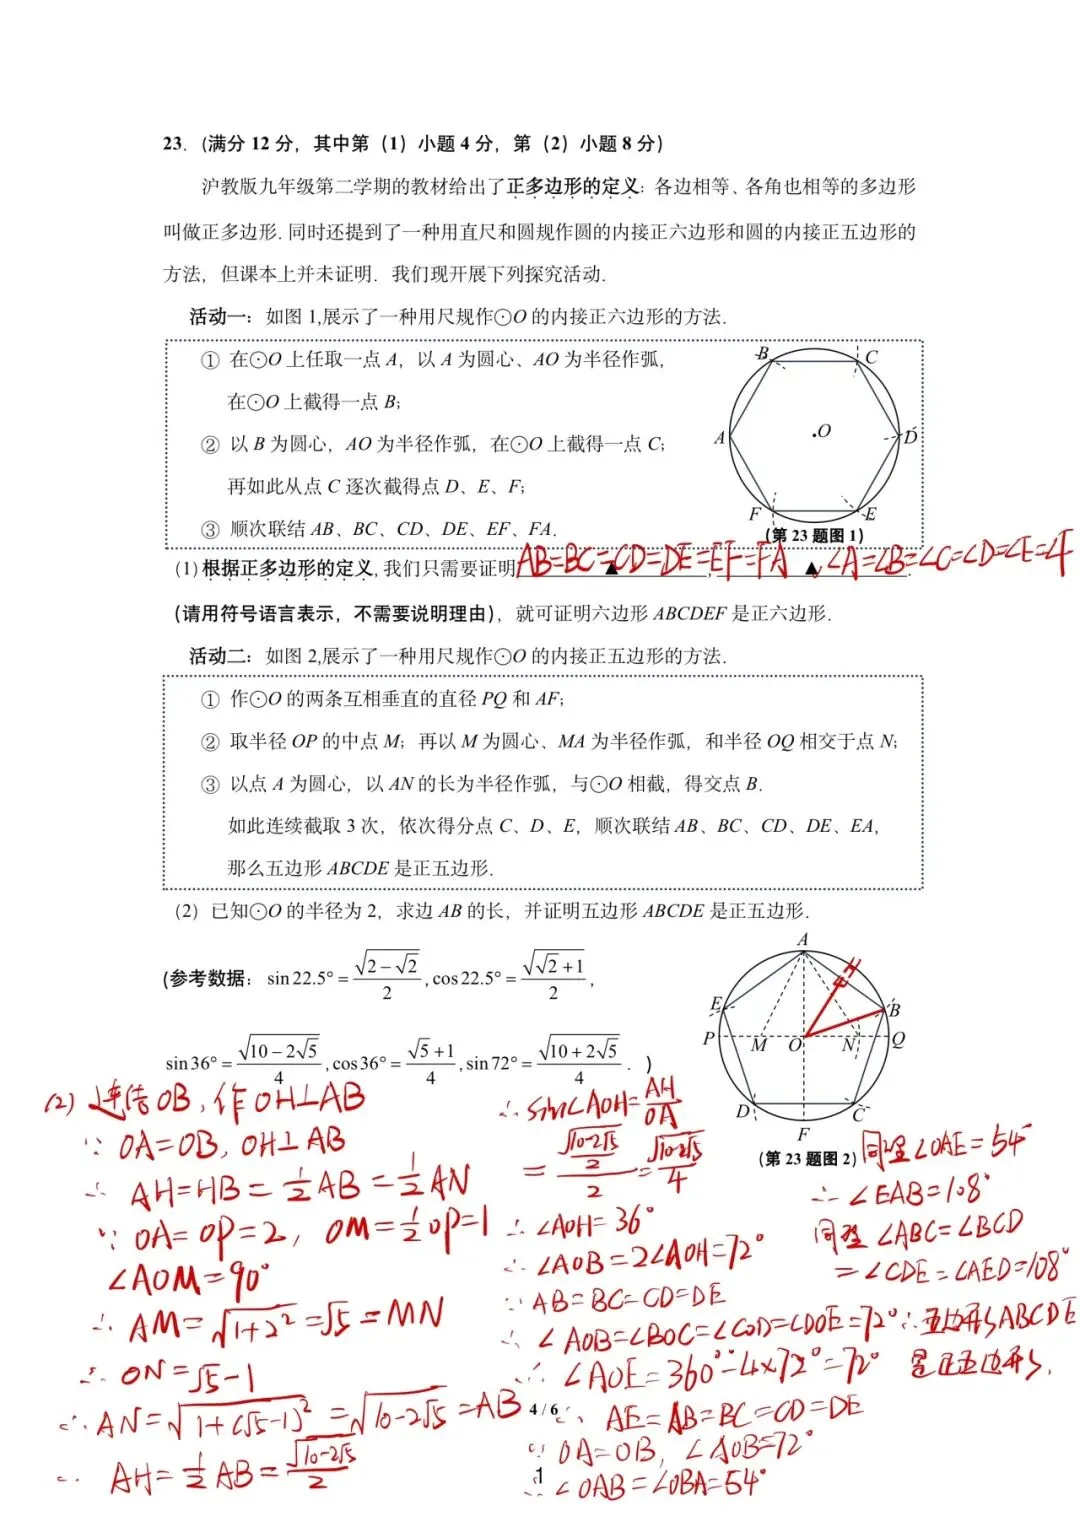 23. (满分 12 分，其中第（1）小题 4 分，第（2）小题 8 分)
沪教版九年级第二学期的教材给出了正多边形的定义：各边相等、各角也相等的多边形
叫做正多边形. 同时还提到了一种用直尺和圆规作圆的内接正六边形和圆的内接正五边形的
方法，但课本上并未证明. 我们现开展下列探究活动.
活动一：如图 1,展示了一种用尺规作⊙O 的内接正六边形的方法.
① 在⊙O 上任取一点 A，以 A 为圆心、AO 为半径作弧，
在⊙O 上截得一点 B；
② 以 B 为圆心，AO 为半径作弧，在⊙O 上截得一点 C；
再如此从点 C 逐次截得点 D、E、F；
③ 顺次联结 AB、BC、CD、DE、EF、FA.
B C
A O D
F E
(第 23 题图 1)
(1) 根据正多边形的定义, 我们只需要证明 AB=BC=CD=DE=EF=FA ▲ , ▲ ∠A=∠B=∠C=∠D=∠E=∠F .
(请用符号语言表示，不需要说明理由)，就可证明六边形 ABCDEF 是正六边形.
活动二：如图 2,展示了一种用尺规作⊙O 的内接正五边形的方法.
① 作⊙O 的两条互相垂直的直径 PQ 和 AF；
② 取半径 OP 的中点 M；再以 M 为圆心、MA 为半径作弧，和半径 OQ 相交于点 N；
③ 以点 A 为圆心，以 AN 的长为半径作弧，与⊙O 相截，得交点 B.
如此连续截取 3 次，依次得分点 C、D、E，顺次联结 AB、BC、CD、DE、EA，
那么五边形 ABCDE 是正五边形.
(2) 已知⊙O 的半径为 2，求边 AB 的长，并证明五边形 ABCDE 是正五边形.
(参考数据：sin 22.5° = √(2−√2)/2 , cos 22.5° = √(√2+1)/2 ,
sin 36° = √(10−2√5)/4 , cos 36° = (√5+1)/4 , sin 72° = √(10+2√5)/4 . )
A
H
E B
P M O N Q
D C
F
(第 23 题图 2)
(2) 连结OB, 作OH⊥AB
∵ OA=OB, OH⊥AB
∴ AH=HB=½AB=½AN
∵ OA=OP=2, OM=½OP=1
∠AOM=90°
∴ AM=√(1+2²)=√5=MN
∴ ON=√5-1
∴ AN=√(1+(√5-1)²)=√(10-2√5)=AB
∴ AH=½AB=√(10-2√5)/2
∴ sin∠AOH=AH/OA
=(√(10-2√5)/2)/2=√(10-2√5)/4
∴ ∠AOH=36°
∴ ∠AOB=2∠AOH=72°
∵ AB=BC=CD=DE
∴ ∠AOB=∠BOC=∠COD=∠DOE=72°
∴ ∠AOE=360°-4×72°=72°
∴ AE=AB=BC=CD=DE
∵ OA=OB, ∠AOB=72°
∴ ∠OAB=∠OBA=54°
同理∠OAE=54°
∴ ∠EAB=108°
同理∠ABC=∠BCD
=∠CDE=∠AED=108°
∴ 五边形ABCDE
是正五边形.
4 / 6
1